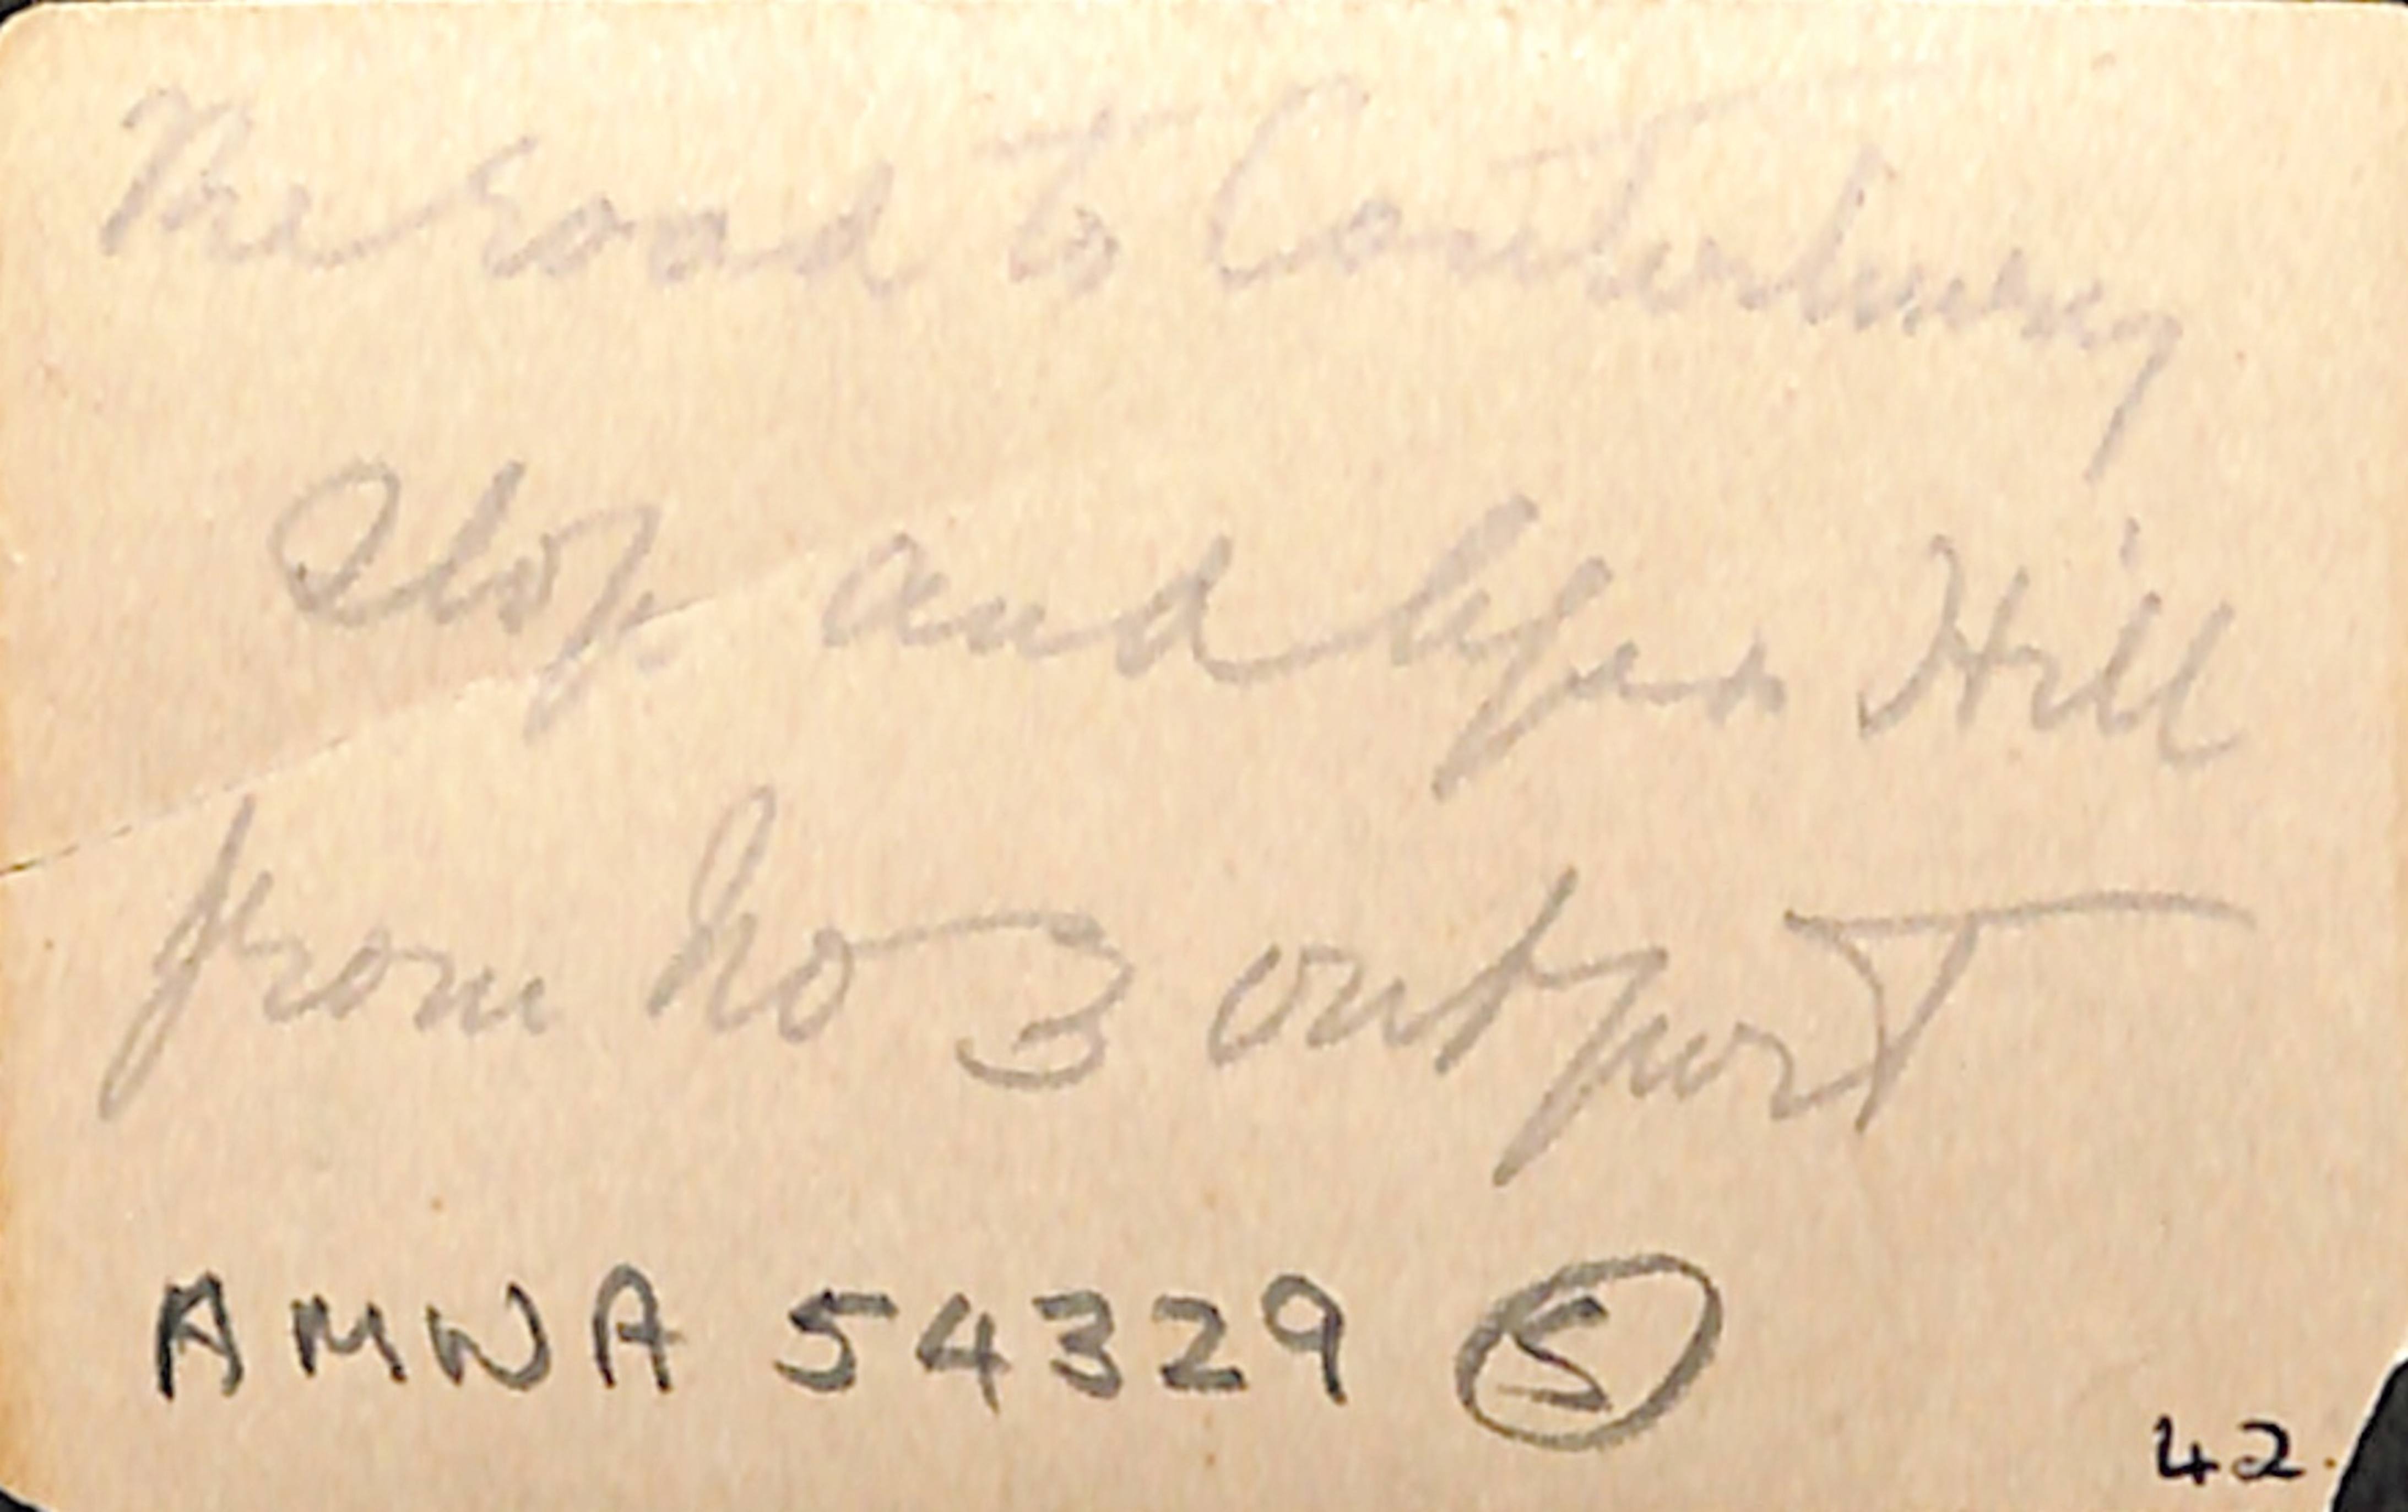 The road to Canterbury
Slope and Apex Hill
from No 3 outpost
AMWA 54329 S
42.